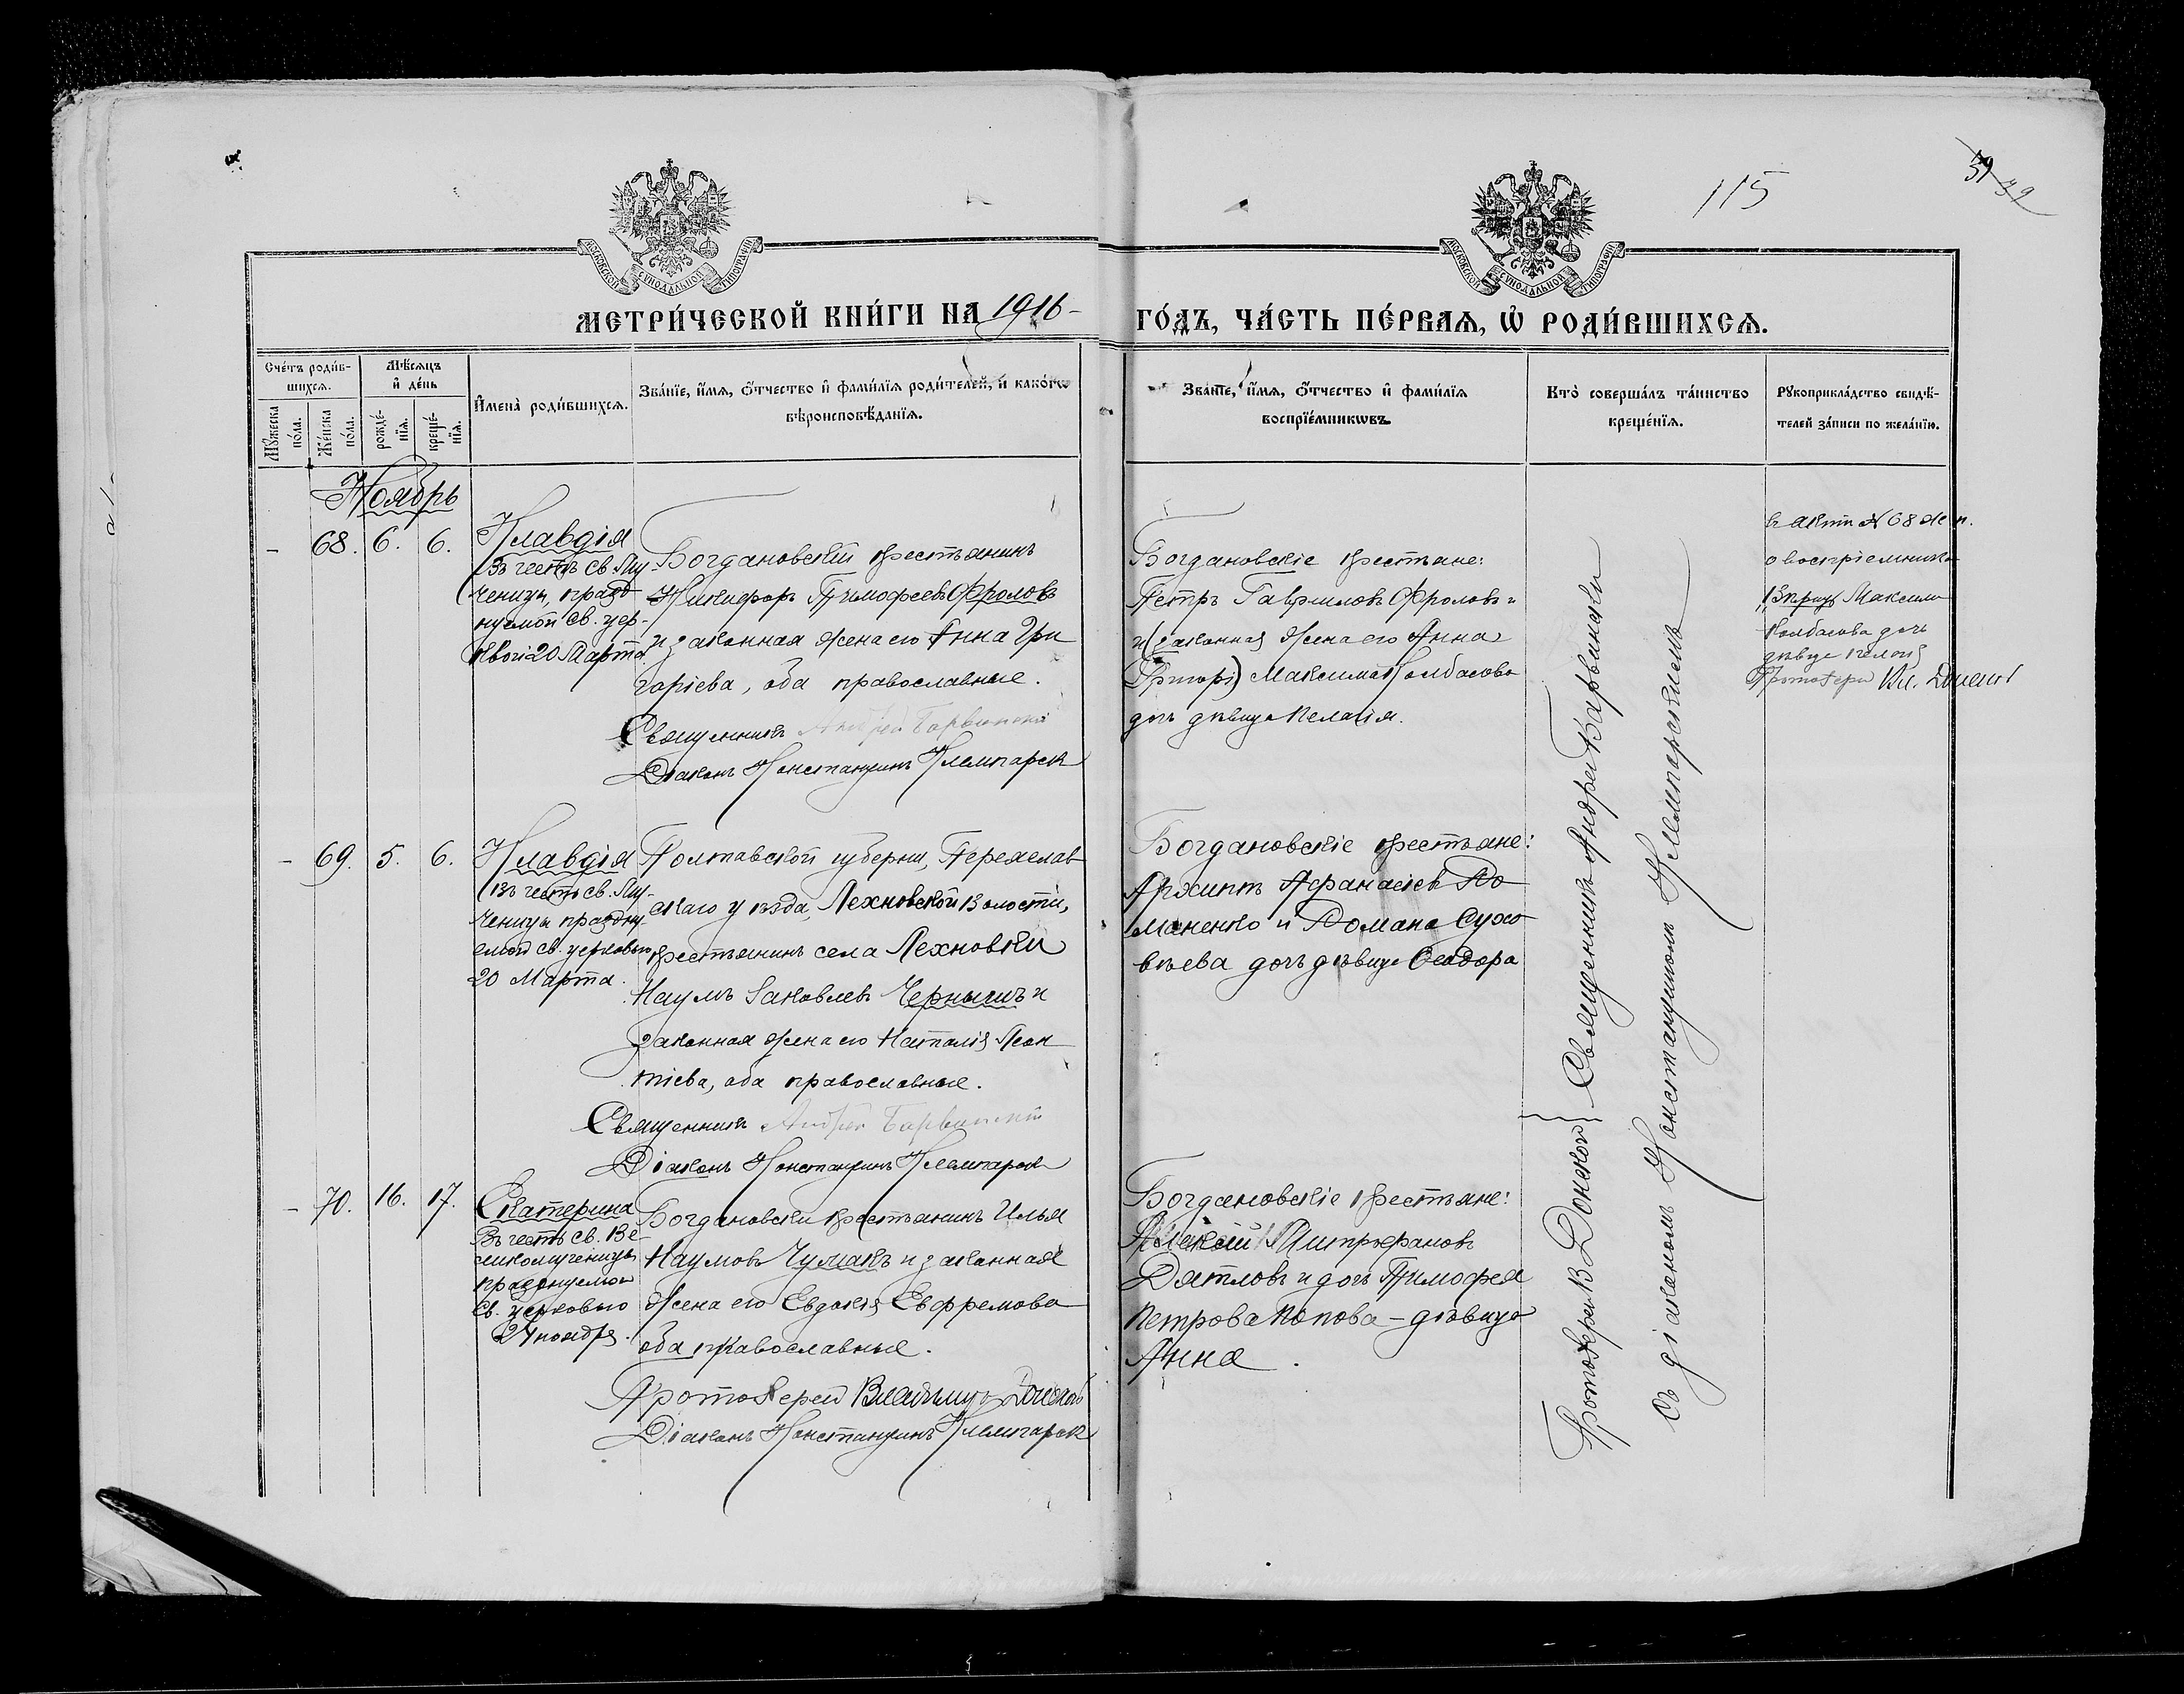 115
39
МОСКОВСКОЙ СУНОДАЛЬНОЙ ТИПОГРАФІИ
МОСКОВСКОЙ СУНОДАЛЬНОЙ ТИПОГРАФІИ
МЕТРИ́ЧЕСКОЙ КНИ́ГИ НА 1916
ГО́ДЪ, ЧА́СТЬ ПЕ́РВАЯ, Ѡ҆ РОДИ́ВШИХСЯ.
Сче́тъ роди́в-
шихся.
Мѣ́сяцъ
и҆ де́нь
Му́жеска
по́ла.
Же́нска
по́ла.
рожде́-
нїя.
креще́-
нїя.
И҆мена̀ роди́вшихся.
Зва́нїе, и҆́мя, ѻ҆́тчество и҆ фами́лїя роди́телей, и҆ како́гѡ
вѣроисповѣ́данїя.
Зва́нїе, и҆́мя, ѻ҆́тчество и҆ фами́лїя
воспрїе́мникѡвъ.
Кто̀ соверша́лъ та́инство
креще́нїя.
Рꙋкоприкла́дство свидѣ́-
телей за́писи по жела́нїю.
Ноябрь
- 68. 6. 6.
Клавдія
(Въ честь св. Му-
ченицы, празд
нуемой св. цер-
ковію 20 Марта.
Богдановскій крестьянинъ
Никифоръ Тимофеевъ Фроловъ
и законная жена его Анна Гри
горіева, оба православные.
Священникъ Андрей Барвинскій
Діаконъ Константинъ Клемпарск
Богдановскіе крестьяне:
Петръ Гавриловъ Фроловъ и
и (законная жена его Анна
Григорі) Максима Колбасова
дочь дѣвица Пелагія.
акту № 68
о воспріемника
Максима
Колбасова дочь
дѣвица Пелагія
Протоіерей Вл. Донской
- 69. 5. 6.
Клавдія
(Въ честь св. Му-
ченицы праздну
емой св. церковію
20 Марта.
Полтавской губерни, Переяслав
скаго уѣзда, Лехновской Волости,
крестьянинъ села Лехновки
Наумъ Іаковлевъ Чернышъ и
законная жена его Наталія Леон
тіева, оба православные.
Священникъ Андрей Барвинскій
Діаконъ Константинъ Клемпарск
Богдановскіе крестьяне:
Архипъ Афанасіевъ До
маненко и Романа Сухо
вѣева дочь дѣвица Феодора
- 70. 16. 17.
Екатерина
Въ честь св. Ве-
ликомученицы
празднуемой
Св. церковью
24 ноября.
Богдановски крестьянинъ Илья
Наумовъ Чумакъ и законная
жена его Евдокія Евфремова
оба православные.
Протоіерей Владимиръ Донской
Діаконъ Константинъ Клемпарск
Богдановскіе крестьяне:
Алексій Митрофановъ
Дятловъ и дочь Тимофея
Петрова Попова - дѣвица
Анна.
Протоіерей В Донской } Священникъ Андрей Барвинскій
Съ діакономъ Константиномъ Клемпарскимъ